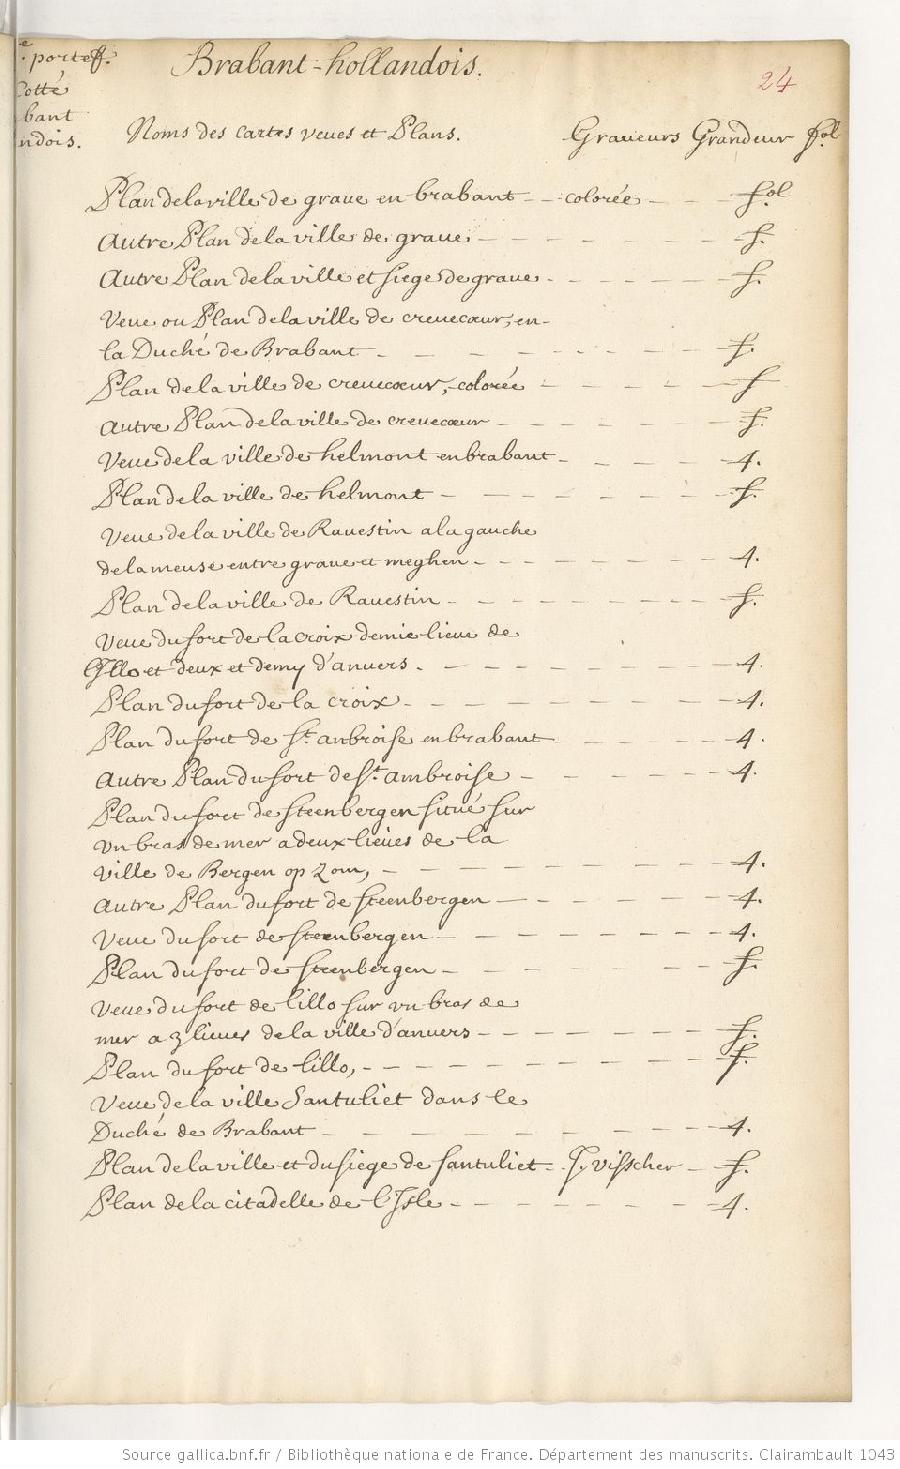 e. portef.
Cotté
bant
ndois.
Brabant-hollandois.
24
Noms des cartes veues et Plans. Graveurs Grandeur fol
Plan de la ville de grave en brabant - - colorée - - - fol.
Autre Plan de la ville de grave. - - - - - - - f.
Autre Plan de la ville et siege de grave - - - - - - f.
Veue ou Plan de la ville de crevecœur, en-
la Duché de Brabant - - - - - - - - f.
Plan de la ville de crevecœur, colorée - - - - - f
Autre Plan de la ville de crevecœur - - - - - - f.
Veue de la ville de helmont en brabant - - - - - 4.
Plan de la ville de helmont - - - - - - - f.
Veue de la ville de Ravestin a la gauche
de la meuse entre grave et meghen - - - - - - 4.
Plan de la ville de Ravestin - - - - - - - f.
Veue du fort de la croix demie lieue de
Lillo et deux et demy d'anvers. - - - - - - - 4.
Plan du fort de la croix - - - - - - - - 4.
Plan du fort de St. anbroise en brabant - - - - 4.
Autre Plan du fort de St. ambroise - - - - - - 4.
Plan du fort de steenbergen situé sur
vn bras de mer a deux lieues de la
ville de Bergen op Zom, - - - - - - - - 4.
Autre Plan du fort de steenbergen - - - - - - 4.
Veue du fort de steenbergen - - - - - - - 4.
Plan du fort de steenbergen - - - - - - - f.
Veue du fort de lillo sur vn bras de
mer a 3 lieues de la ville d'anvers - - - - - - f.
Plan du fort de lillo, - - - - - - - - f.
Veue de la ville Santuliet dans le
Duché de Brabant - - - - - - - - 4.
Plan de la ville et du siege de santuliet - - J, visscher - f.
Plan de la citadelle de l'Isle - - - - - - - 4.
Source gallica.bnf.fr / Bibliothèque nationale de France. Département des manuscrits. Clairambault 1043